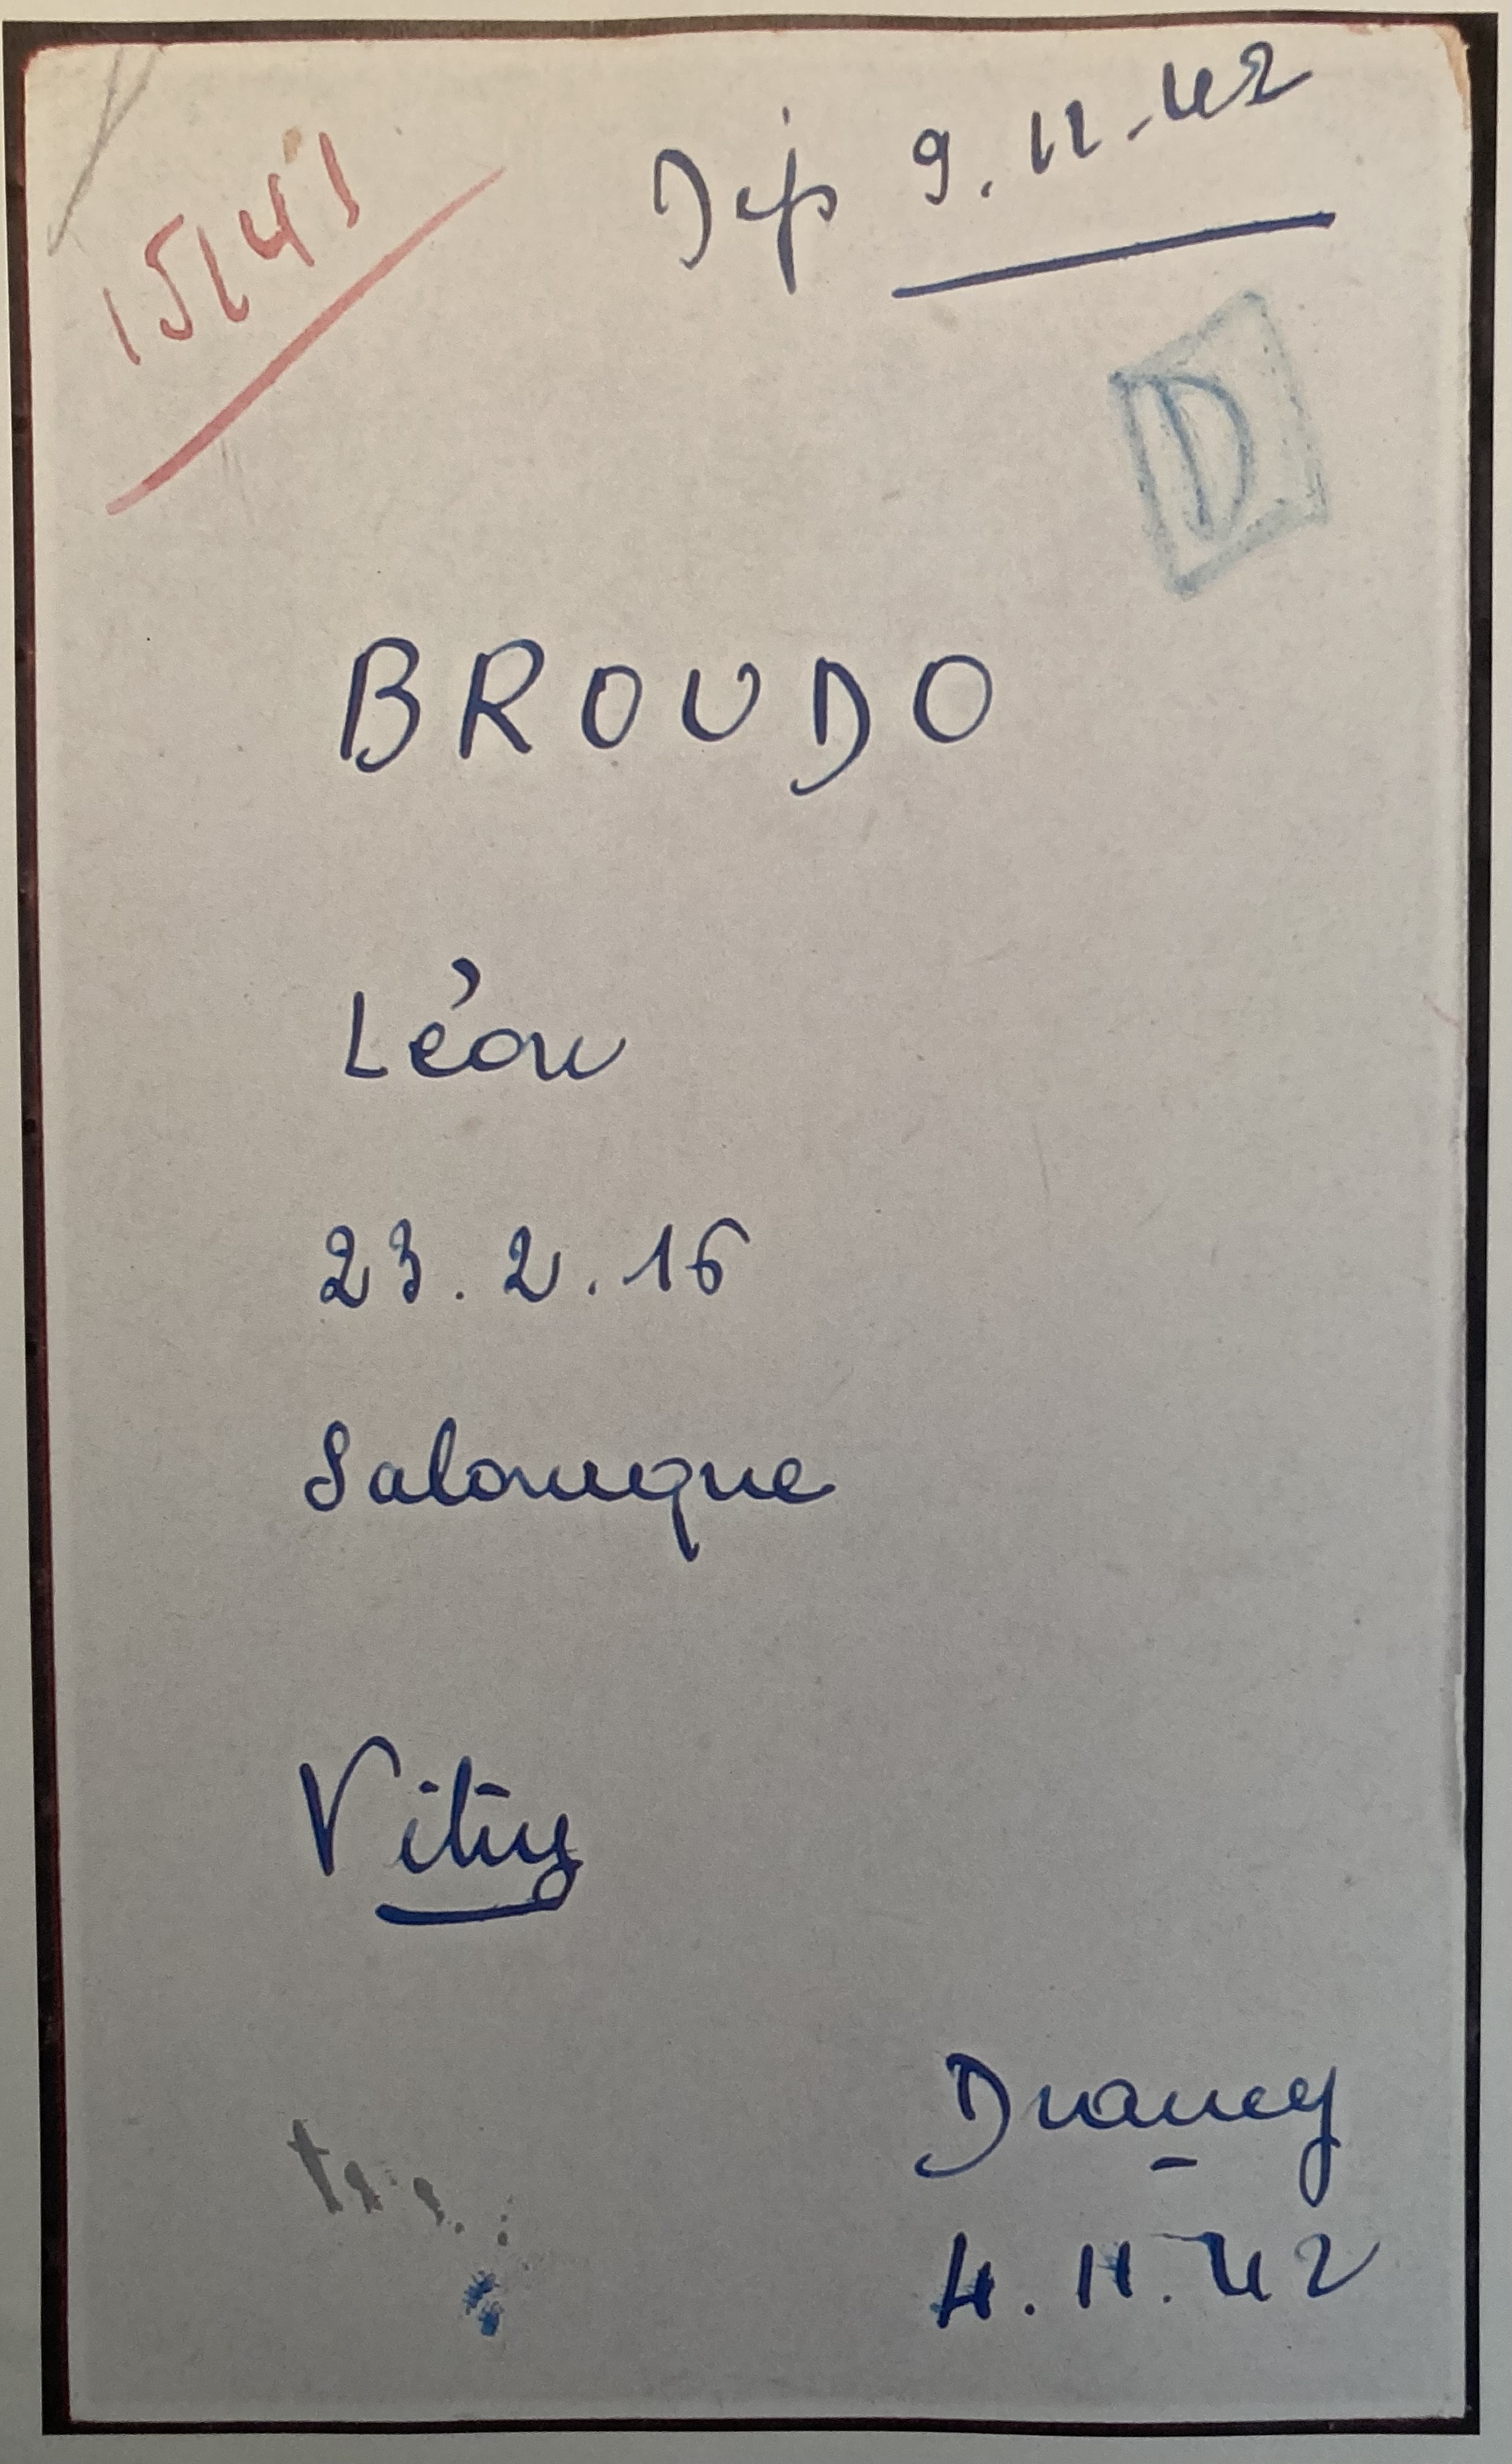 15141
Dép 9.11-42
D
BROUDO
Léon
23.2.16
Salonique
Vitry
Drancy
4.11.42